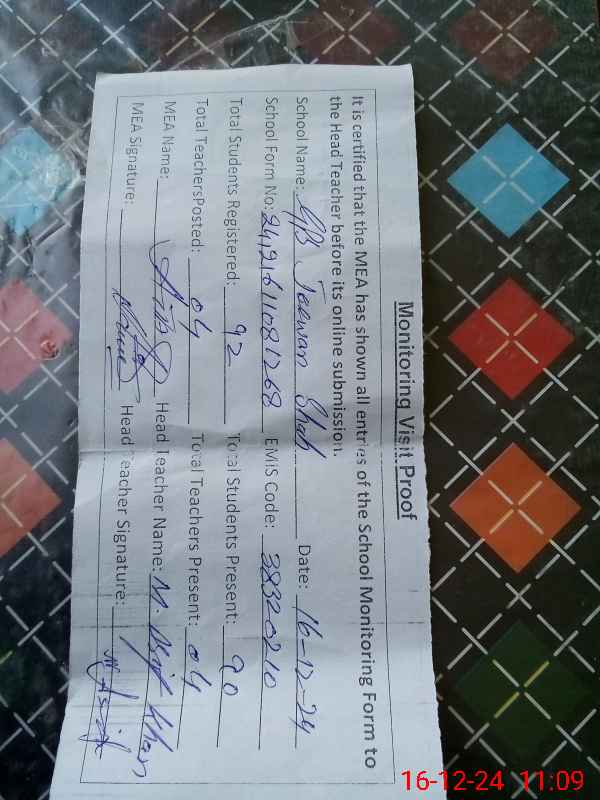 Monitoring Visit Proof
It is certified that the MEA has shown all entries of the School Monitoring Form to
the Head Teacher before its online submission.
School Name: Jeewan Shah Date: 16-12-24
School Form No: EMIS Code: 38320210
Total Students Registered: 92 Total Students Present: 90
Total TeachersPosted: 04 Total Teachers Present: 04
MEA Name: Head Teacher Name: M. Asif Khan
MEA Signature: Head Teacher Signature: M Asif
16-12-24 11:09